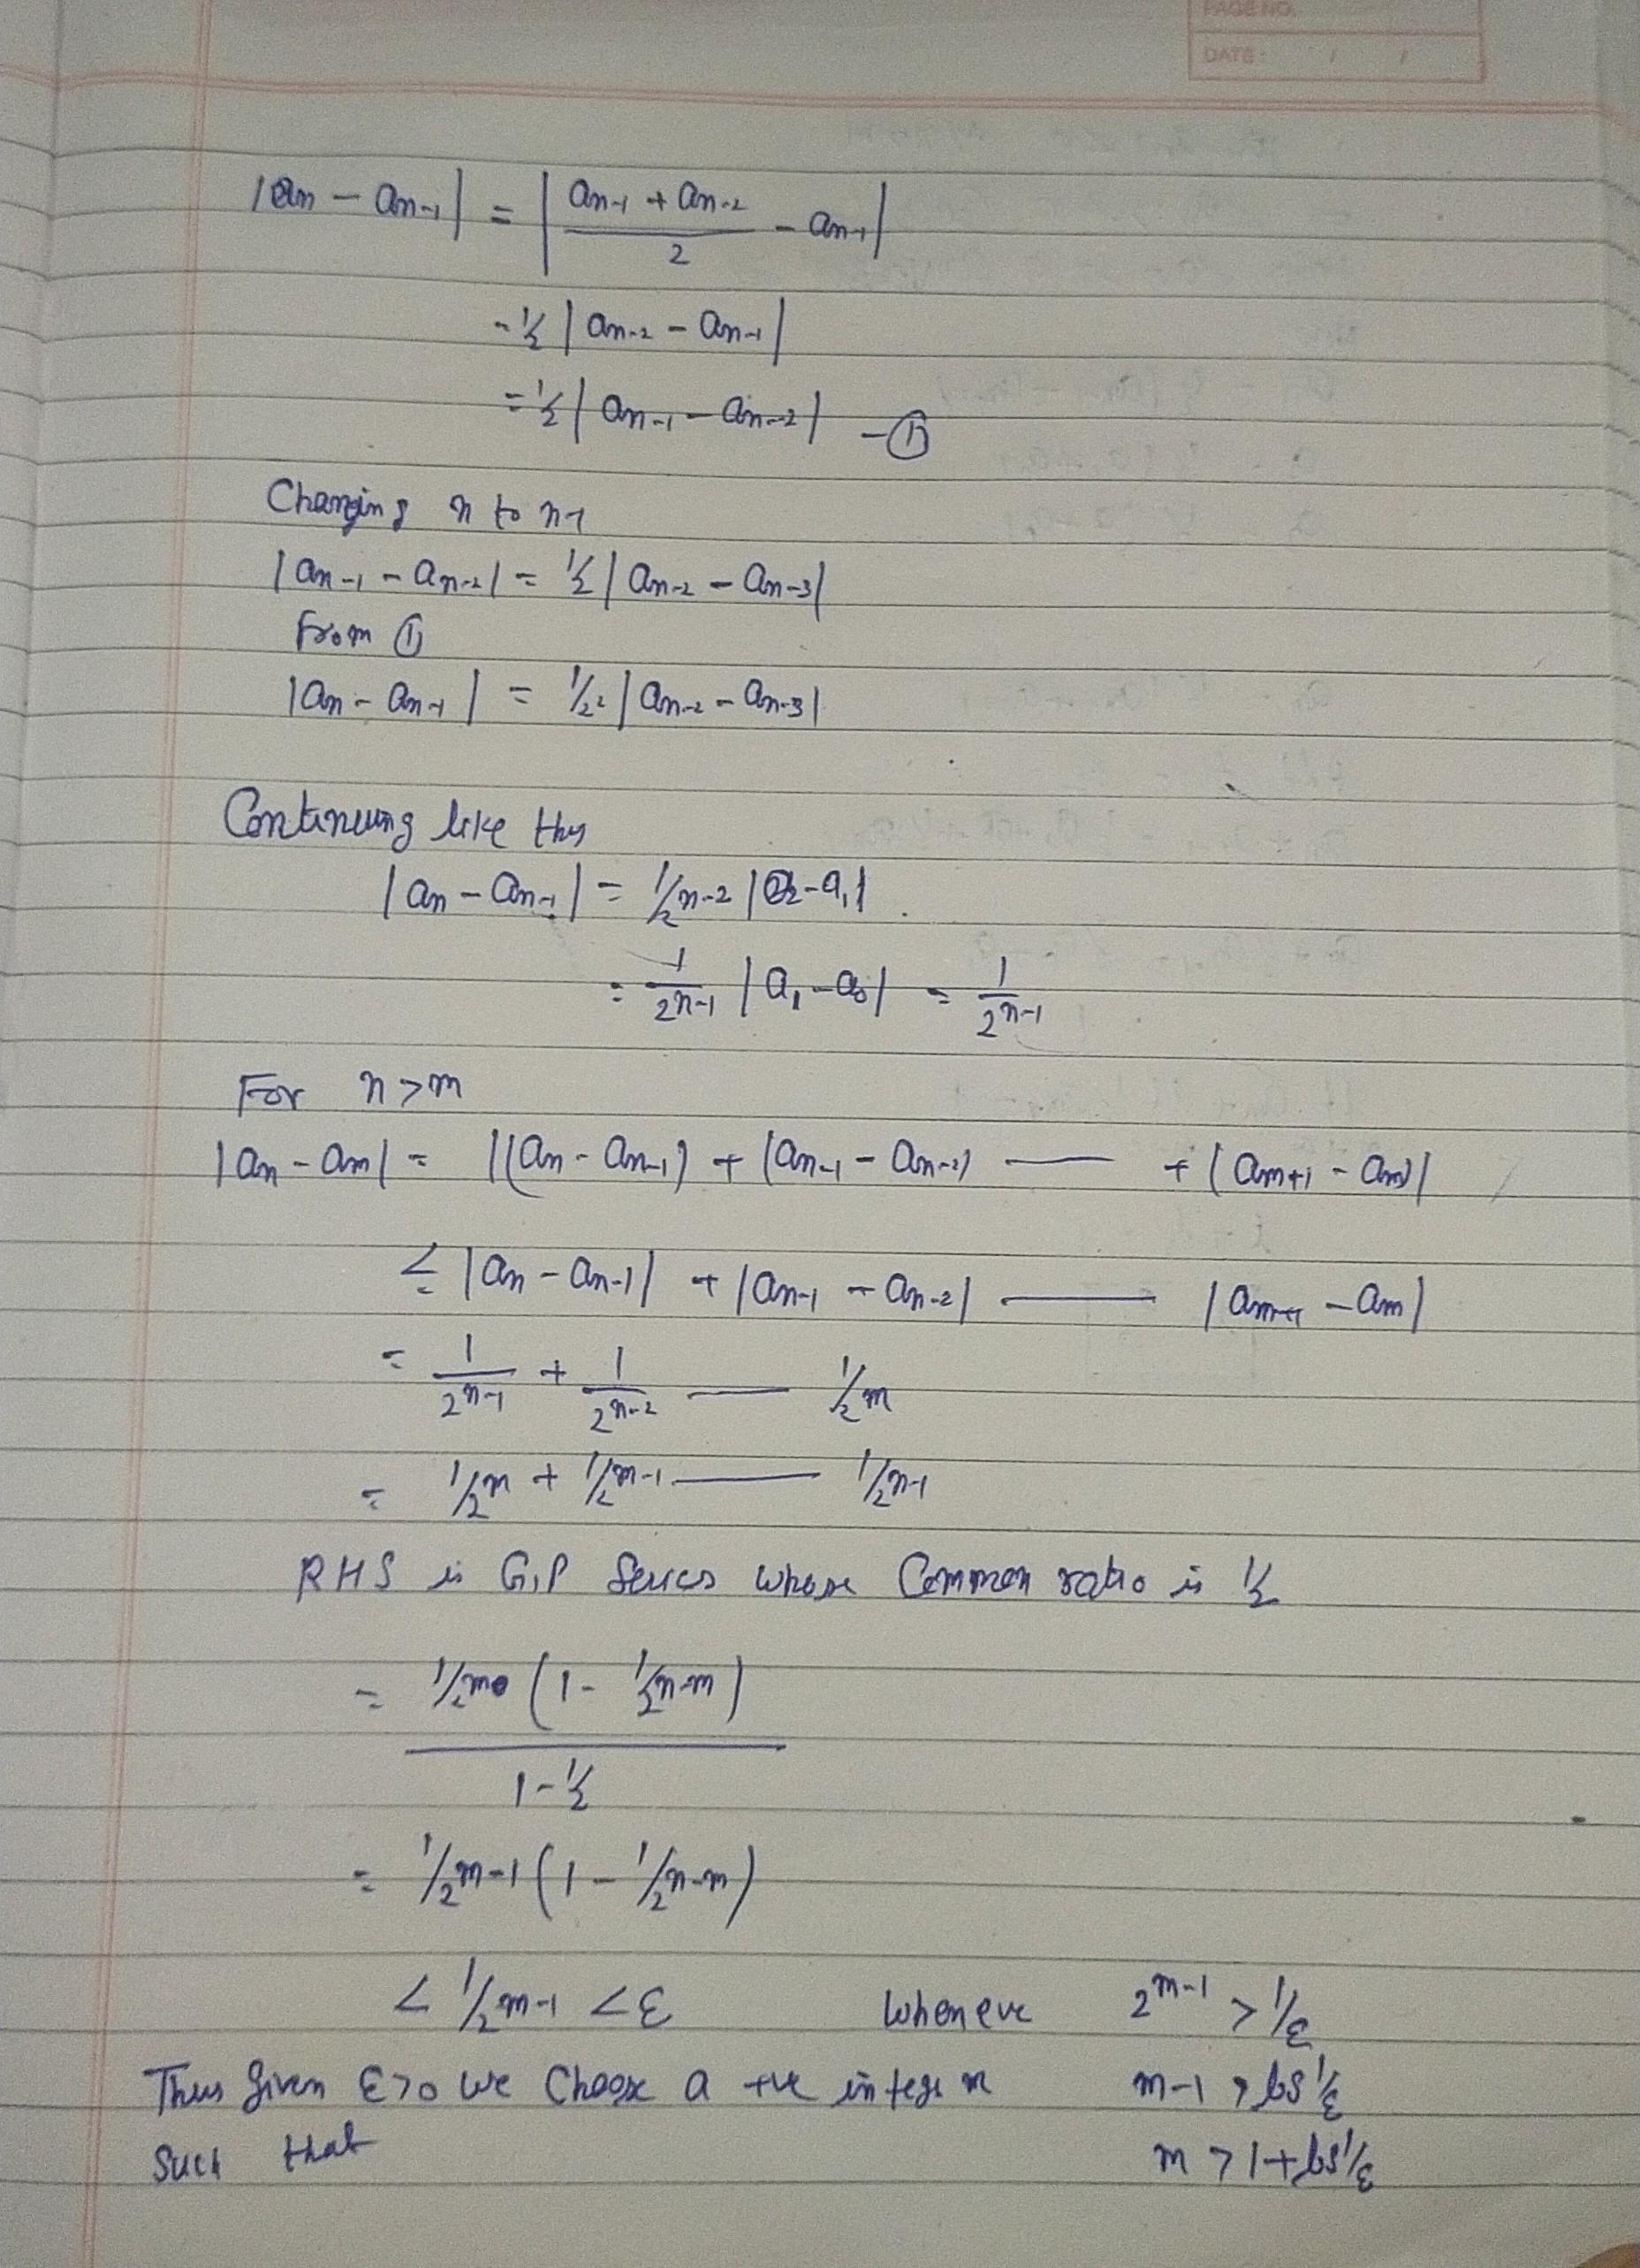 PAGE NO.
DATE: / /
|an - an-1| = |(an-1 + an-2)/2 - an-1|
= 1/2 | an-2 - an-1|
= 1/2 | an-1 - an-2| - ①
Changing n to n-1
|an-1 - an-2| = 1/2 | an-2 - an-3|
from ①
|an - an-1| = 1/2² | an-2 - an-3|
Continuing like this
|an - an-1| = 1/2^n-2 |a2 - a1|
= 1/2^n-1 |a1 - a0| = 1/2^n-1
For n > m
|an - am| = |(an - an-1) + (an-1 - an-2) —— + (am+1 - am)|
≤ |an - an-1| + |an-1 - an-2| —— |am+1 - am|
= 1/2^n-1 + 1/2^n-2 —— 1/2^m
= 1/2^m + 1/2^m-1 —— 1/2^n-1
RHS is G.P Series whose Common ratio is 1/2
= 1/2^m (1 - 1/2^n-m)
1 - 1/2
= 1/2^m-1 (1 - 1/2^n-m)
< 1/2^m-1 < ε wheneve 2^m-1 > 1/ε
Thus given ε>0 we choose a +ve integr m m-1 > log 1/ε
Such that m > 1 + log 1/ε